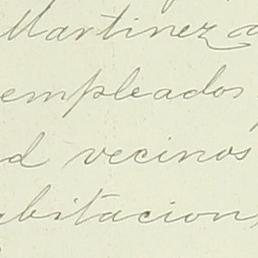 Martinez
empleados
d vecinos
bitacion